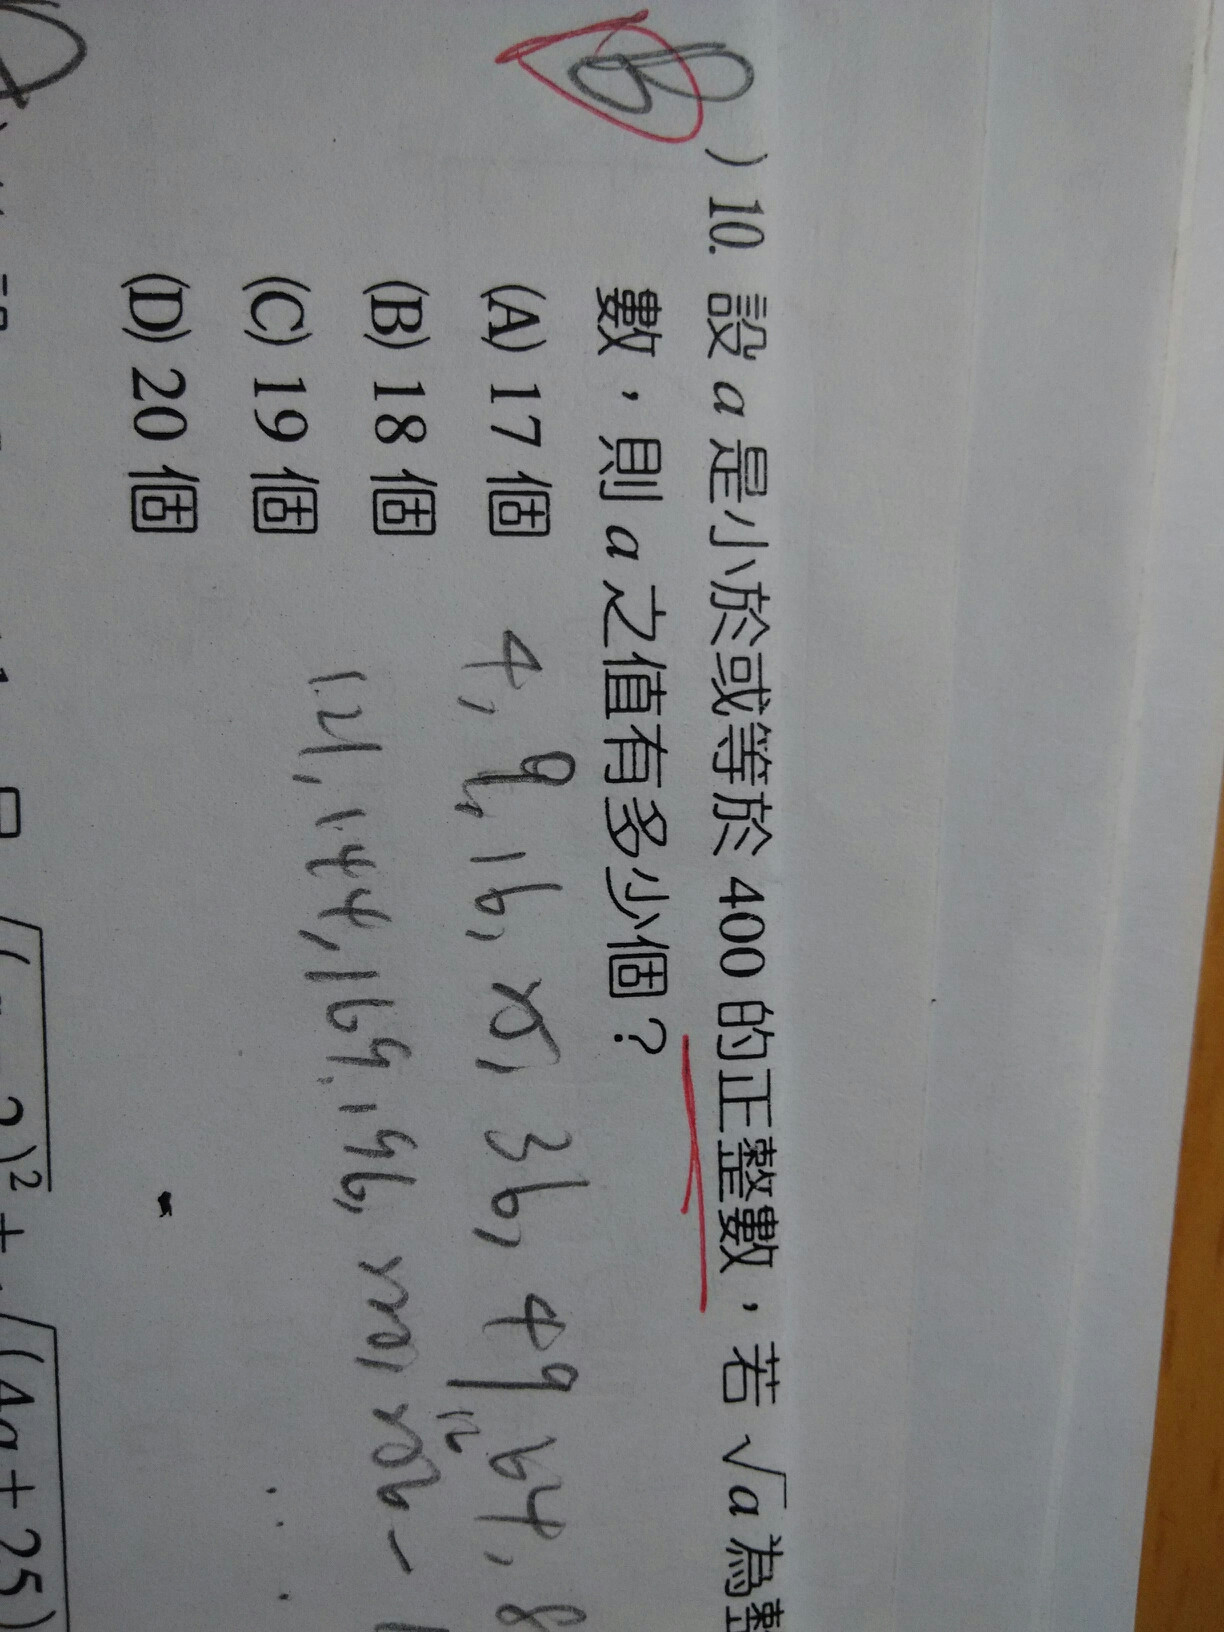 )10. 設 a 是小於或等於 400 的正整數，若 √a 為整
數，則 a 之值有多少個？
(A) 17 個
4, 9, 16, 25, 36, 49, 64, 8
(B) 18 個
(C) 19 個
121, 144, 169, 196,
(D) 20 個
2)² +
(4a + 25)